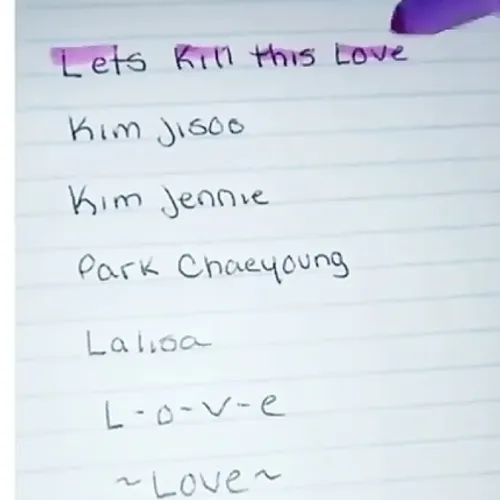 Lets Kill this Love
Kim Jisoo
Kim Jennie
Park Chaeyoung
Lalisa
L-o-v-e
~Love~